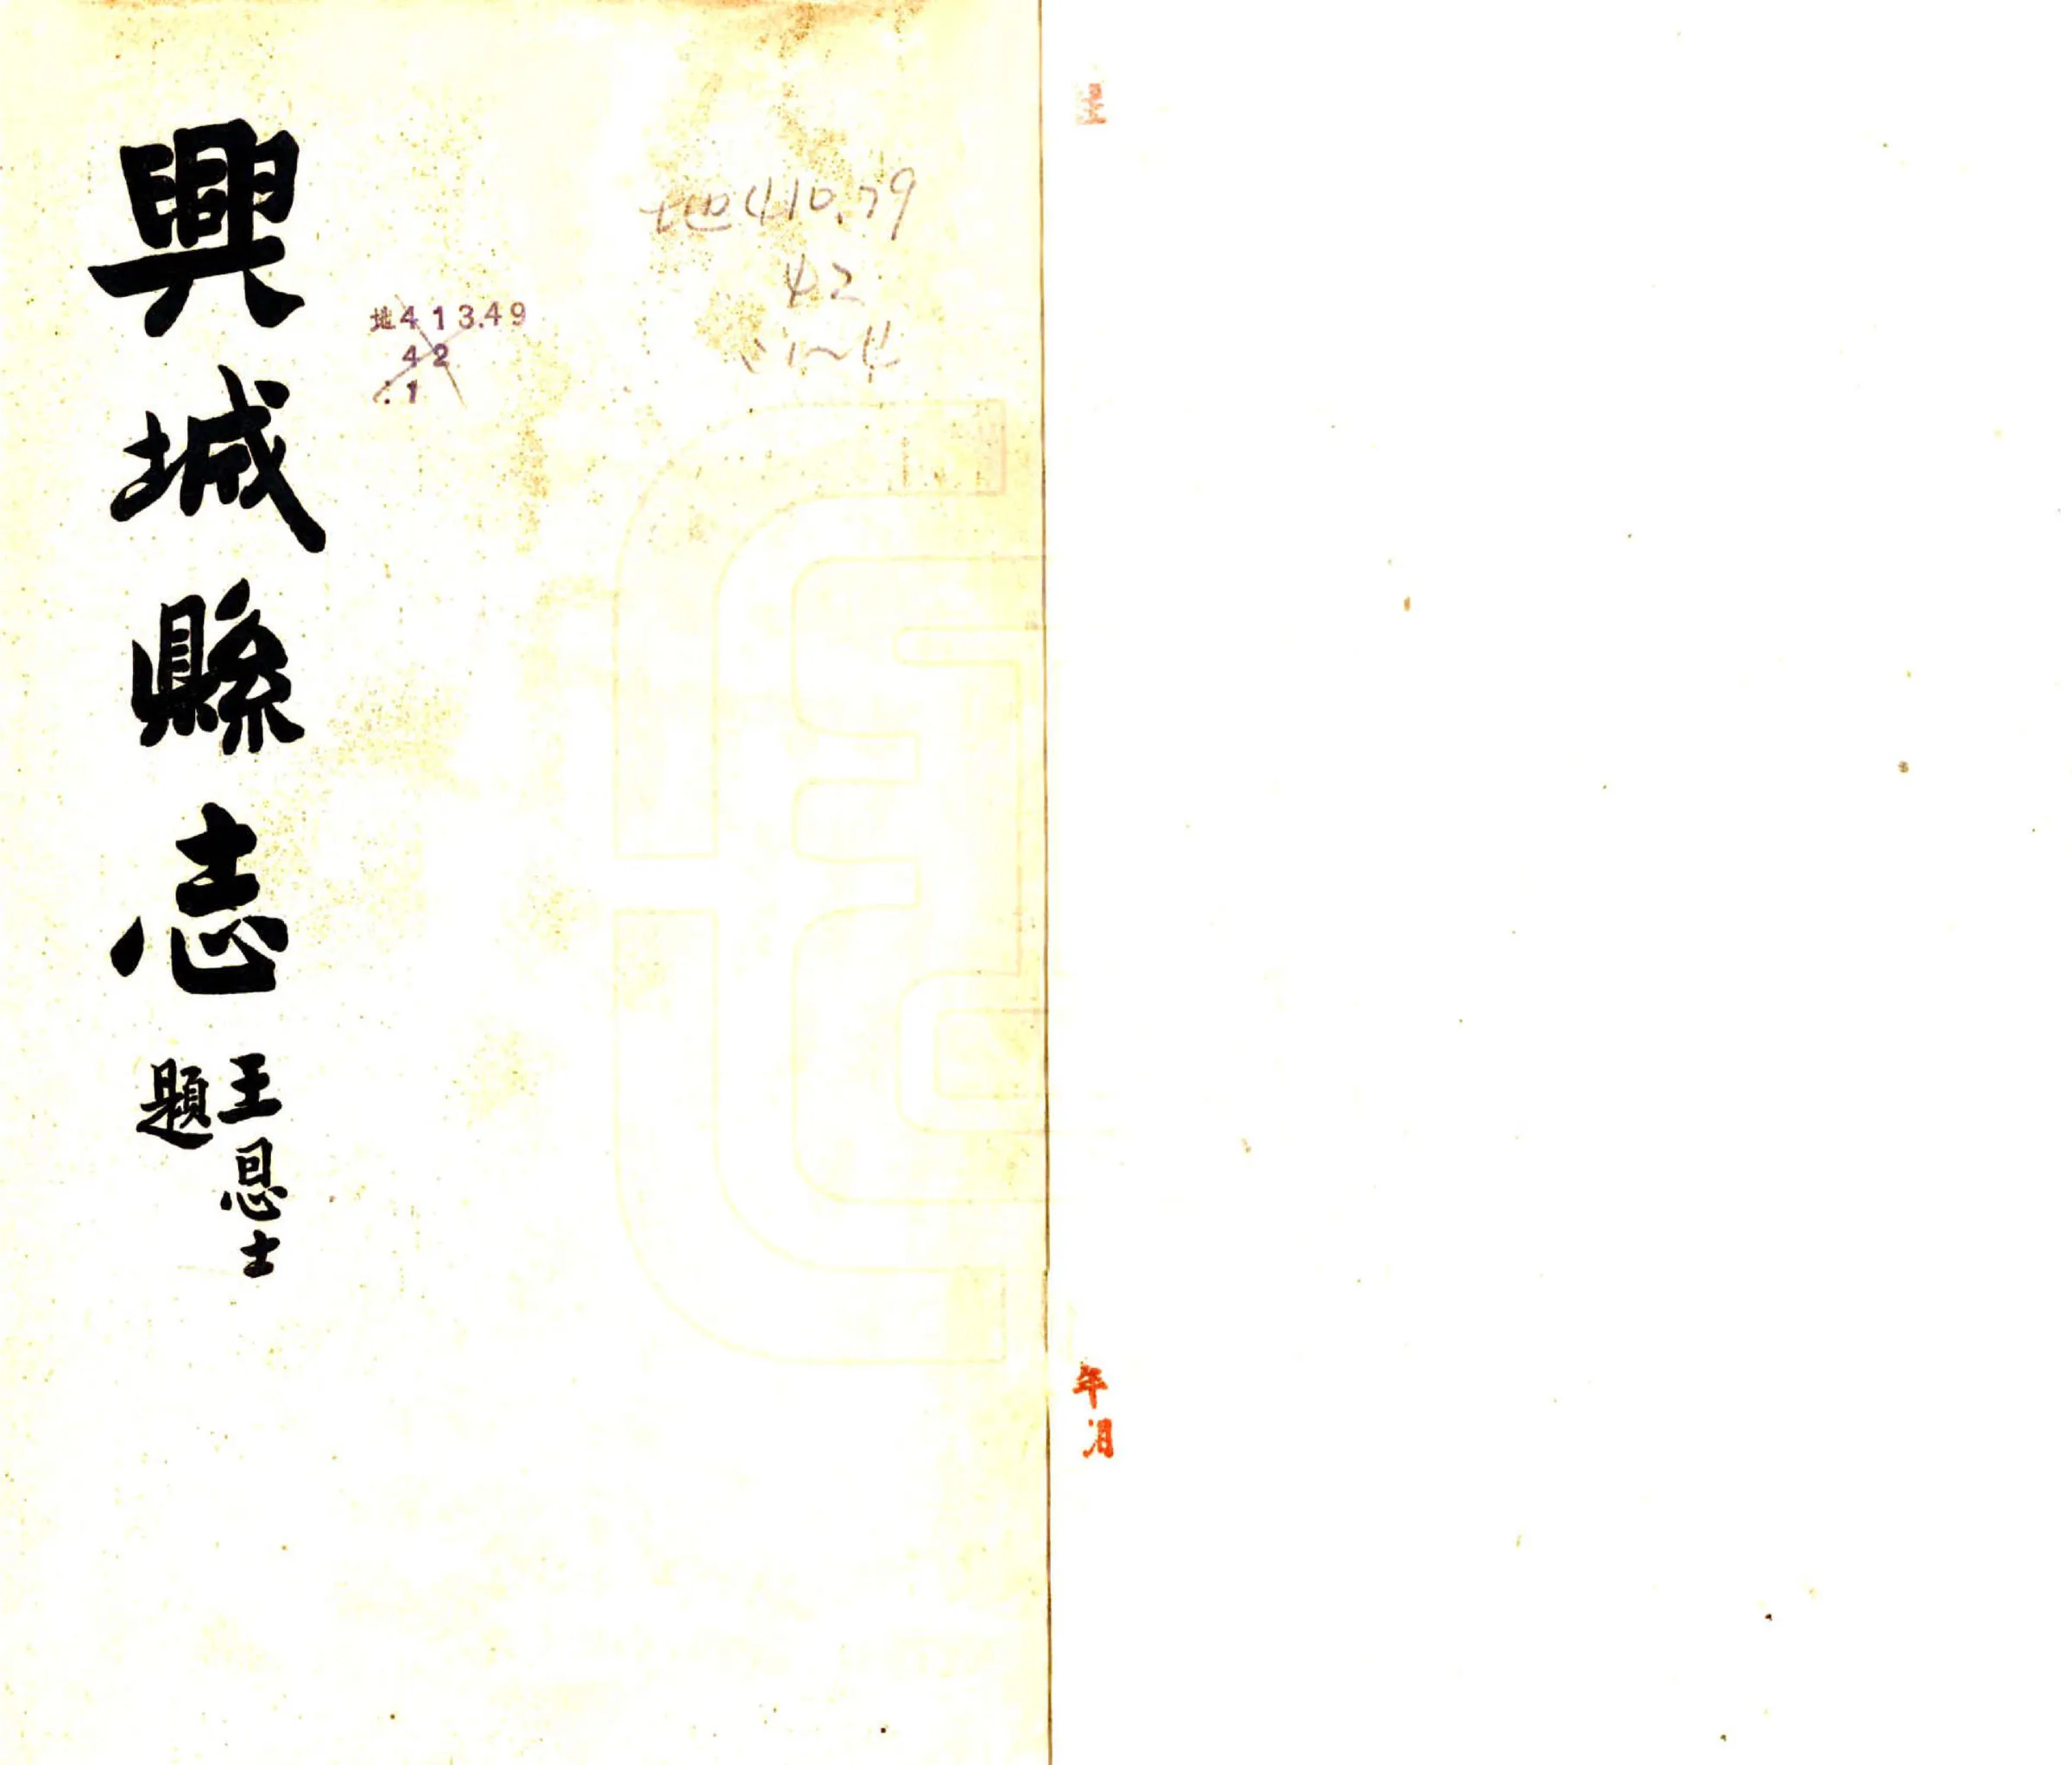 興城縣志
王恩士
題
地413.49
42
:1
地410.79
42
年
月